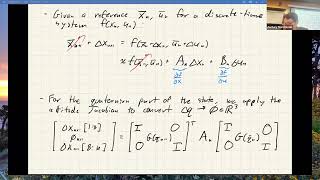 - Given a reference x̄ₙ, ūₙ for a discrete-time
system f(xₙ, uₙ)
x̄ₙ₊₁ + Δxₙ₊₁ = f(x̄ₙ + Δxₙ, ūₙ + Δuₙ)
≈ f(x̄ₙ, ūₙ) + Aₙ Δxₙ + Bₙ Δuₙ
∂f/∂x ∂f/∂u
- For the quaternion part of the state, we apply the
attitude Jacobian to convert Δq → φ ∈ ℝ³
[Δxₙ₊₁[1:3] φₙ₊₁ Δxₙ₊₁[8:] = [I O G( ) O I]ᵀ Aₙ [I O G( ) O I]